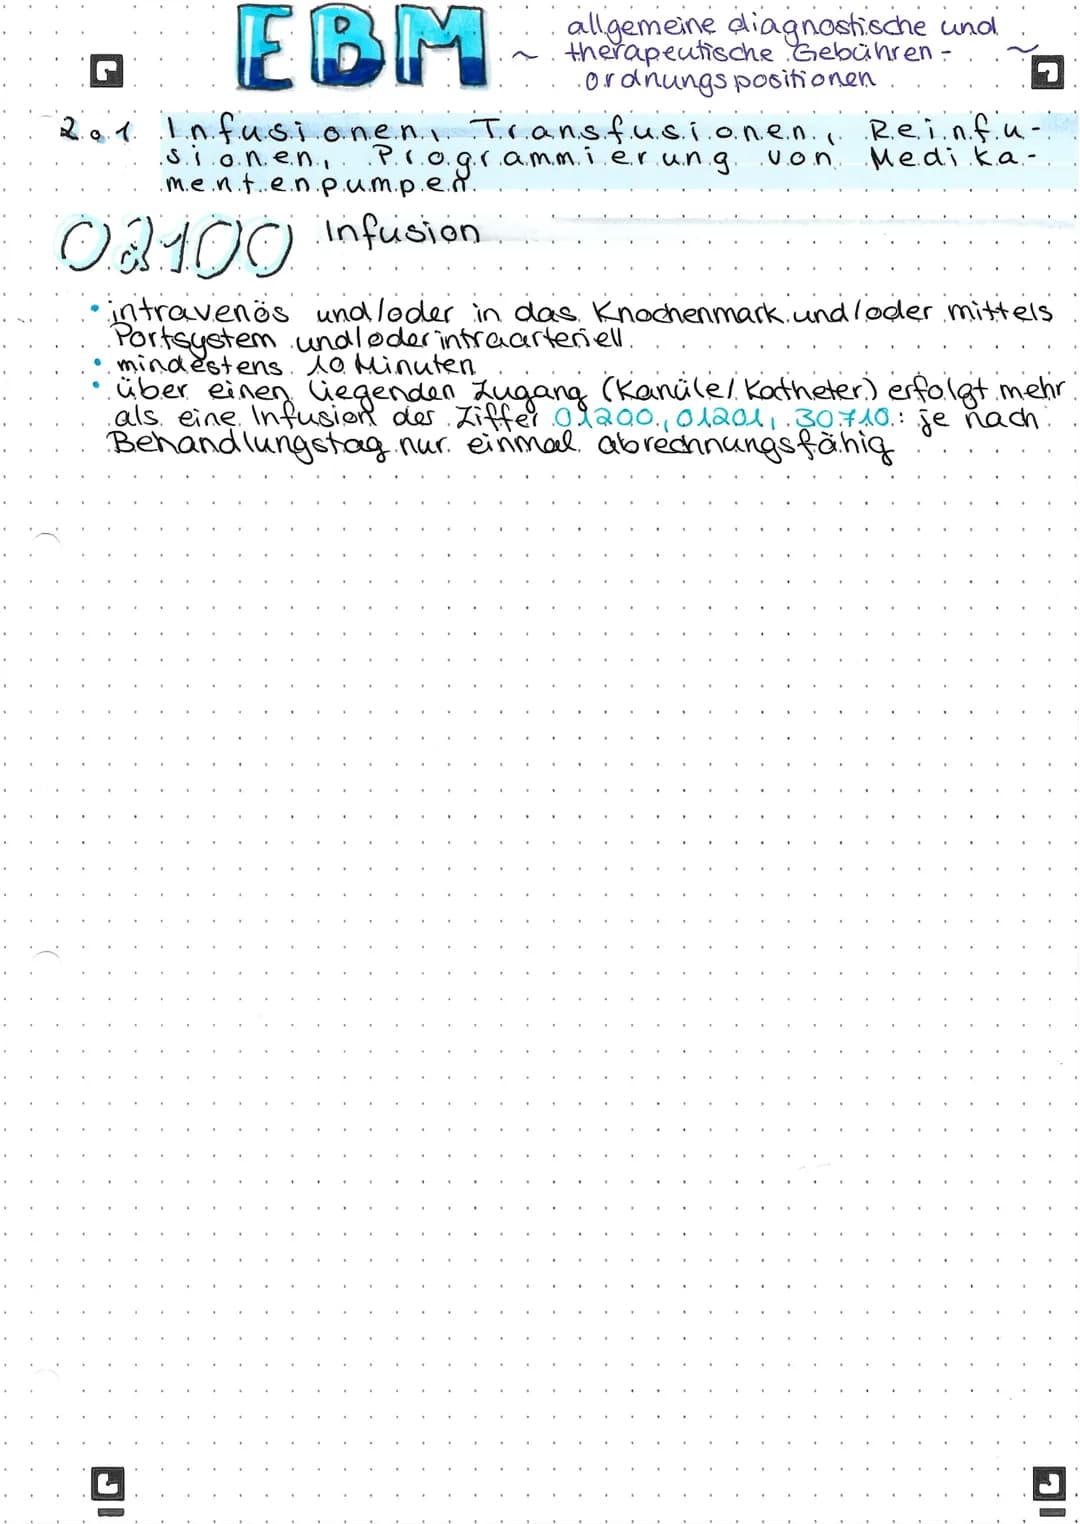 EBM ~ allgemeine diagnostische und ~
therapeutische Gebühren-
ordnungspositionen
2.1 Infusionen, Transfusionen, Reinfu-
sionen, Programmierung von Medika-
mentenpumpen
02100 Infusion
• intravenös und/oder in das Knochenmark und/oder mittels
Portsystem und/oder intraarteriell
• mindestens 10 Minuten
• über einen liegenden Zugang (Kanüle/Katheter) erfolgt mehr
als eine Infusion der Ziffer 01200, 01201, 30710: je nach
Behandlungstag nur einmal abrechnungsfähig